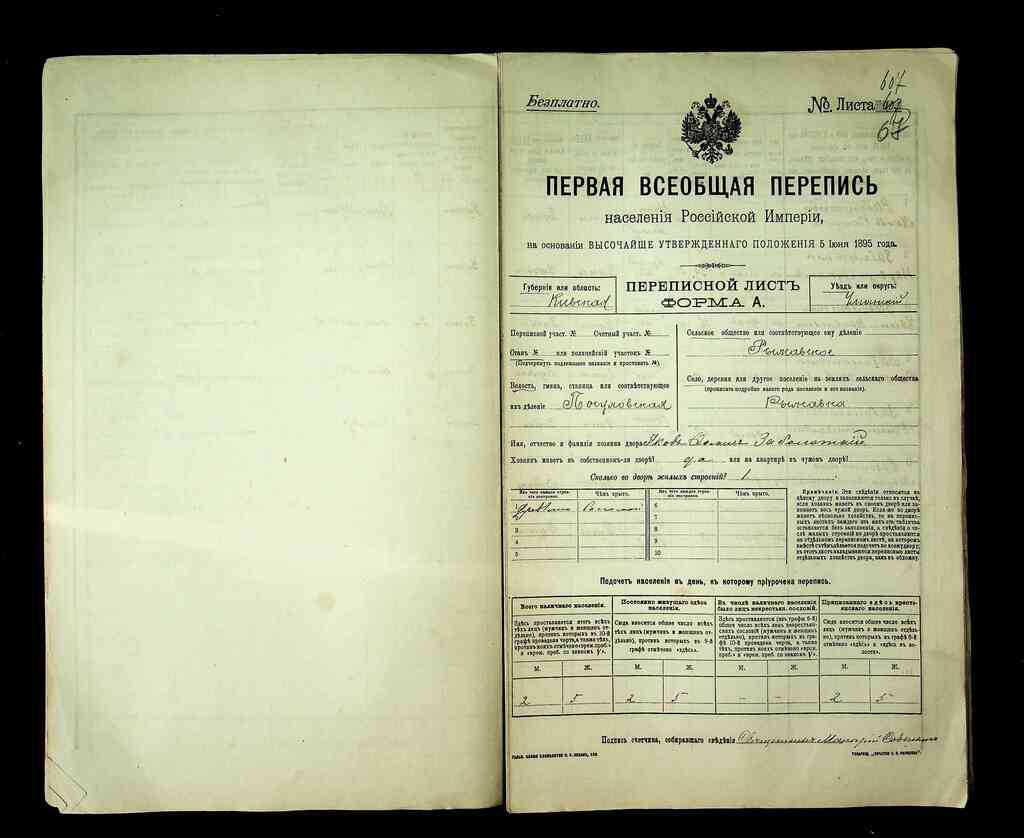 Безплатно.
№ Листа 607
67
ПЕРВАЯ ВСЕОБЩАЯ ПЕРЕПИСЬ
населенія Россійской Имперіи,
на основаніи ВЫСОЧАЙШЕ УТВЕРЖДЕННАГО ПОЛОЖЕНІЯ 5 Іюня 1895 года.
Губернія или область:
Кіевская
ПЕРЕПИСНОЙ ЛИСТЪ
ФОРМА А.
Уѣздъ или округъ:
Уманскій
Переписной участ. № Счетный участ. №
Станъ № или полицейскій участокъ №
(Подчеркнуть подлежащее названіе и проставить №).
Волость, гмина, станица или соотвѣтствующее
имъ дѣленіе
Сельское общество или соотвѣтствующее ему дѣленіе
Рыжавское
Село, деревня или другое поселеніе на земляхъ сельскаго общества
(прописать подробно какого рода поселеніе и его названіе).
Рыжавка
Имя, отчество и фамилія хозяина двора Яковъ Заболотній
Хозяинъ живетъ въ собственномъ-ли дворѣ? да или на квартирѣ въ чужомъ дворѣ?
Сколько во дворѣ жилыхъ строеній? 1
Изъ чего каждое строеніе построено. Чѣмъ крыто. Изъ чего каждое строеніе построено. Чѣмъ крыто.
1 6
2 7
3 8
4 9
5 10
Примѣчаніе. Эти свѣдѣнія относятся къ
цѣлому двору и заполняются только въ случаѣ,
если хозяинъ живетъ въ своемъ дворѣ или занимаетъ
весь чужой дворъ. Если-же во дворѣ
живетъ нѣсколько хозяйствъ, то на переписныхъ
листахъ каждаго изъ нихъ эта табличка
остается безъ заполненія, а свѣдѣнія о числѣ
жилыхъ строеній во дворѣ проставляются
на отдѣльномъ переписномъ листѣ, на которомъ
вмѣстѣ съ тѣмъ дѣлается подсчетъ по всему двору;
въ этотъ листъ вкладываются переписные листы
отдѣльныхъ хозяйствъ двора, какъ въ обложку.
Подсчетъ населенія въ день, къ которому пріурочена перепись.
Всего наличнаго населенія.
Здѣсь проставляется итогъ всѣхъ
тѣхъ лицъ (мужчинъ и женщинъ отдѣльно),
противъ которыхъ въ 10-й
графѣ проведена черта, а также тѣхъ,
противъ коихъ отмѣчено «врем. преб.»
и «врем. преб. со знакомъ V».
Постоянно живущаго здѣсь
населенія.
Сюда вносится общее число всѣхъ
тѣхъ лицъ (мужчинъ и женщинъ отдѣльно),
противъ которыхъ въ 9-й
графѣ отмѣчено «здѣсь».
Въ числѣ наличнаго населенія
было лицъ некрестьян. сословій.
Здѣсь проставляется (изъ графы 6-й)
общее число всѣхъ лицъ некрестьянскихъ
сословій (мужчинъ и женщинъ
отдѣльно), противъ которыхъ въ графѣ
10-й проведена черта, а также
тѣхъ, противъ коихъ отмѣчено «врем.
преб.» и «врем. преб. со знакомъ V».
Приписаннаго здѣсь крестьянскаго
населенія.
Сюда вносится общее число всѣхъ
лицъ (мужчинъ и женщинъ отдѣльно),
противъ которыхъ въ графѣ 8-й
отмѣчено «здѣсь» и «здѣсь въ волости».
М. Ж. М. Ж. М. Ж. М. Ж.
2 5 2 5 – – 2 5
Подпись счетчика, собиравшаго свѣдѣнія